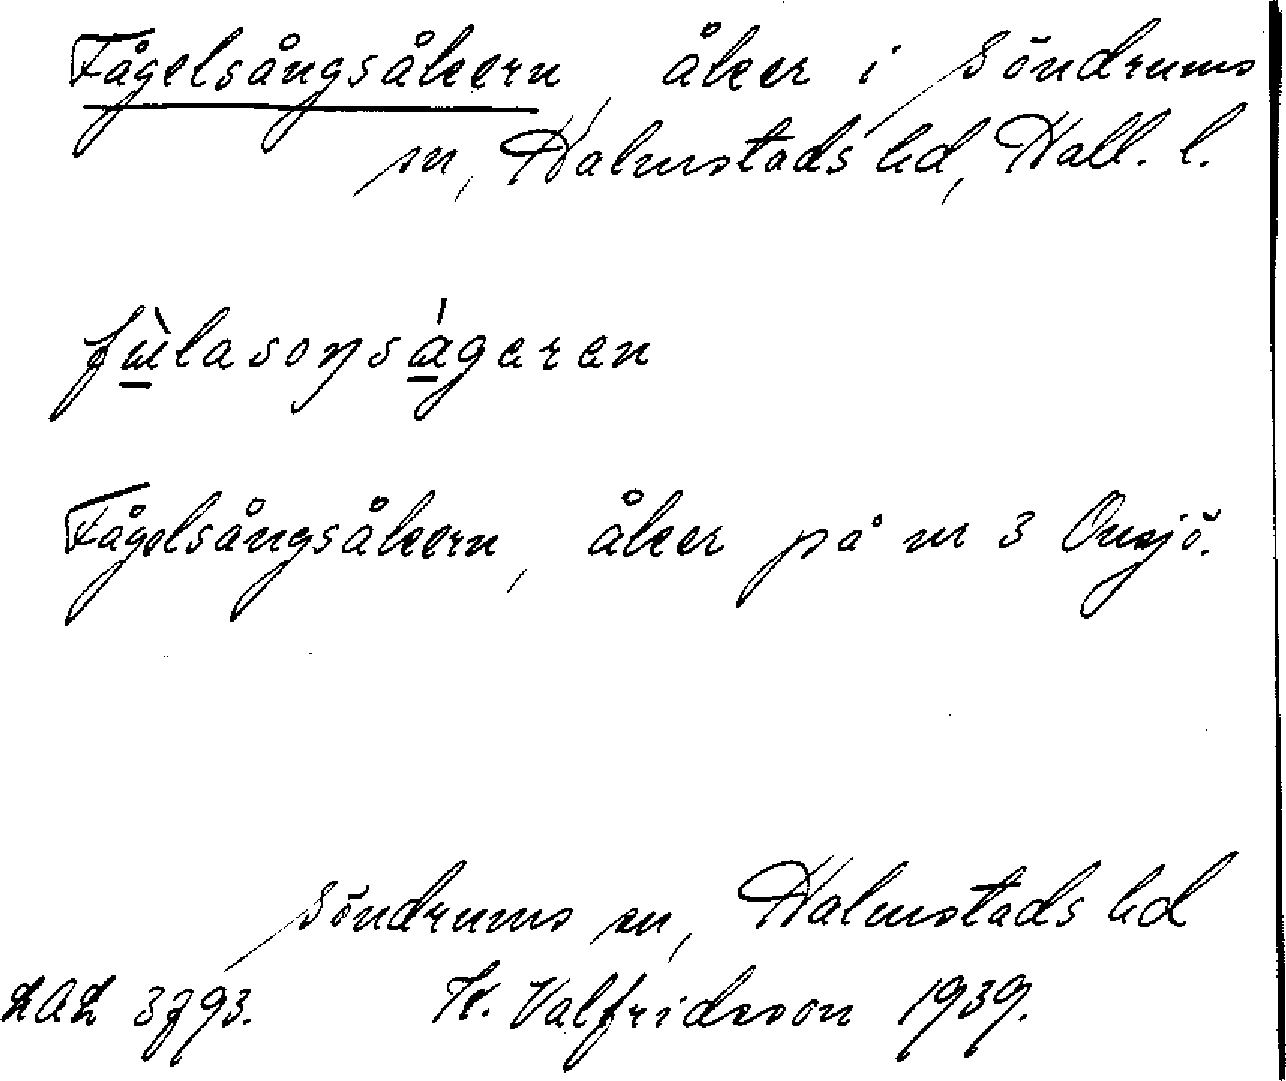 Fågelsångsåkern, åker i Söndrums
sn, Halmstads hd, Hall. l.
fùlasoŋságeren
Fågelsångsåkern, åker på nr 3 Onsjö.
Söndrums sn, Halmstads hd
LAL 3793. K. Valfridsson 1939.